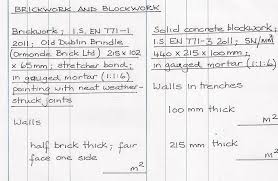 BRICKWORK AND BLOCKWORK
Brickwork; I.S. EN 771-1
2011; Old Dublin Brindle
(Ormonde Brick Ltd) 215 x 102
x 65mm; stretcher bond;
in gauged mortar (1:1:6)
pointing with neat weather-
struck joints
Walls
half brick thick; fair
face one side
m²
Solid concrete blockwork;
I.S. EN 771-3 2011; 5N/mm²
440 x 215 x 100mm;
in gauged mortar (1:1:6)
Walls in trenches
100 mm thick
m²
215 mm thick
m²